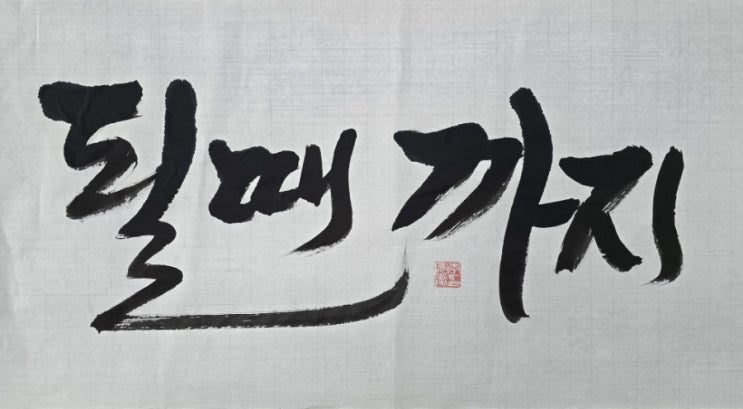 될때 까지